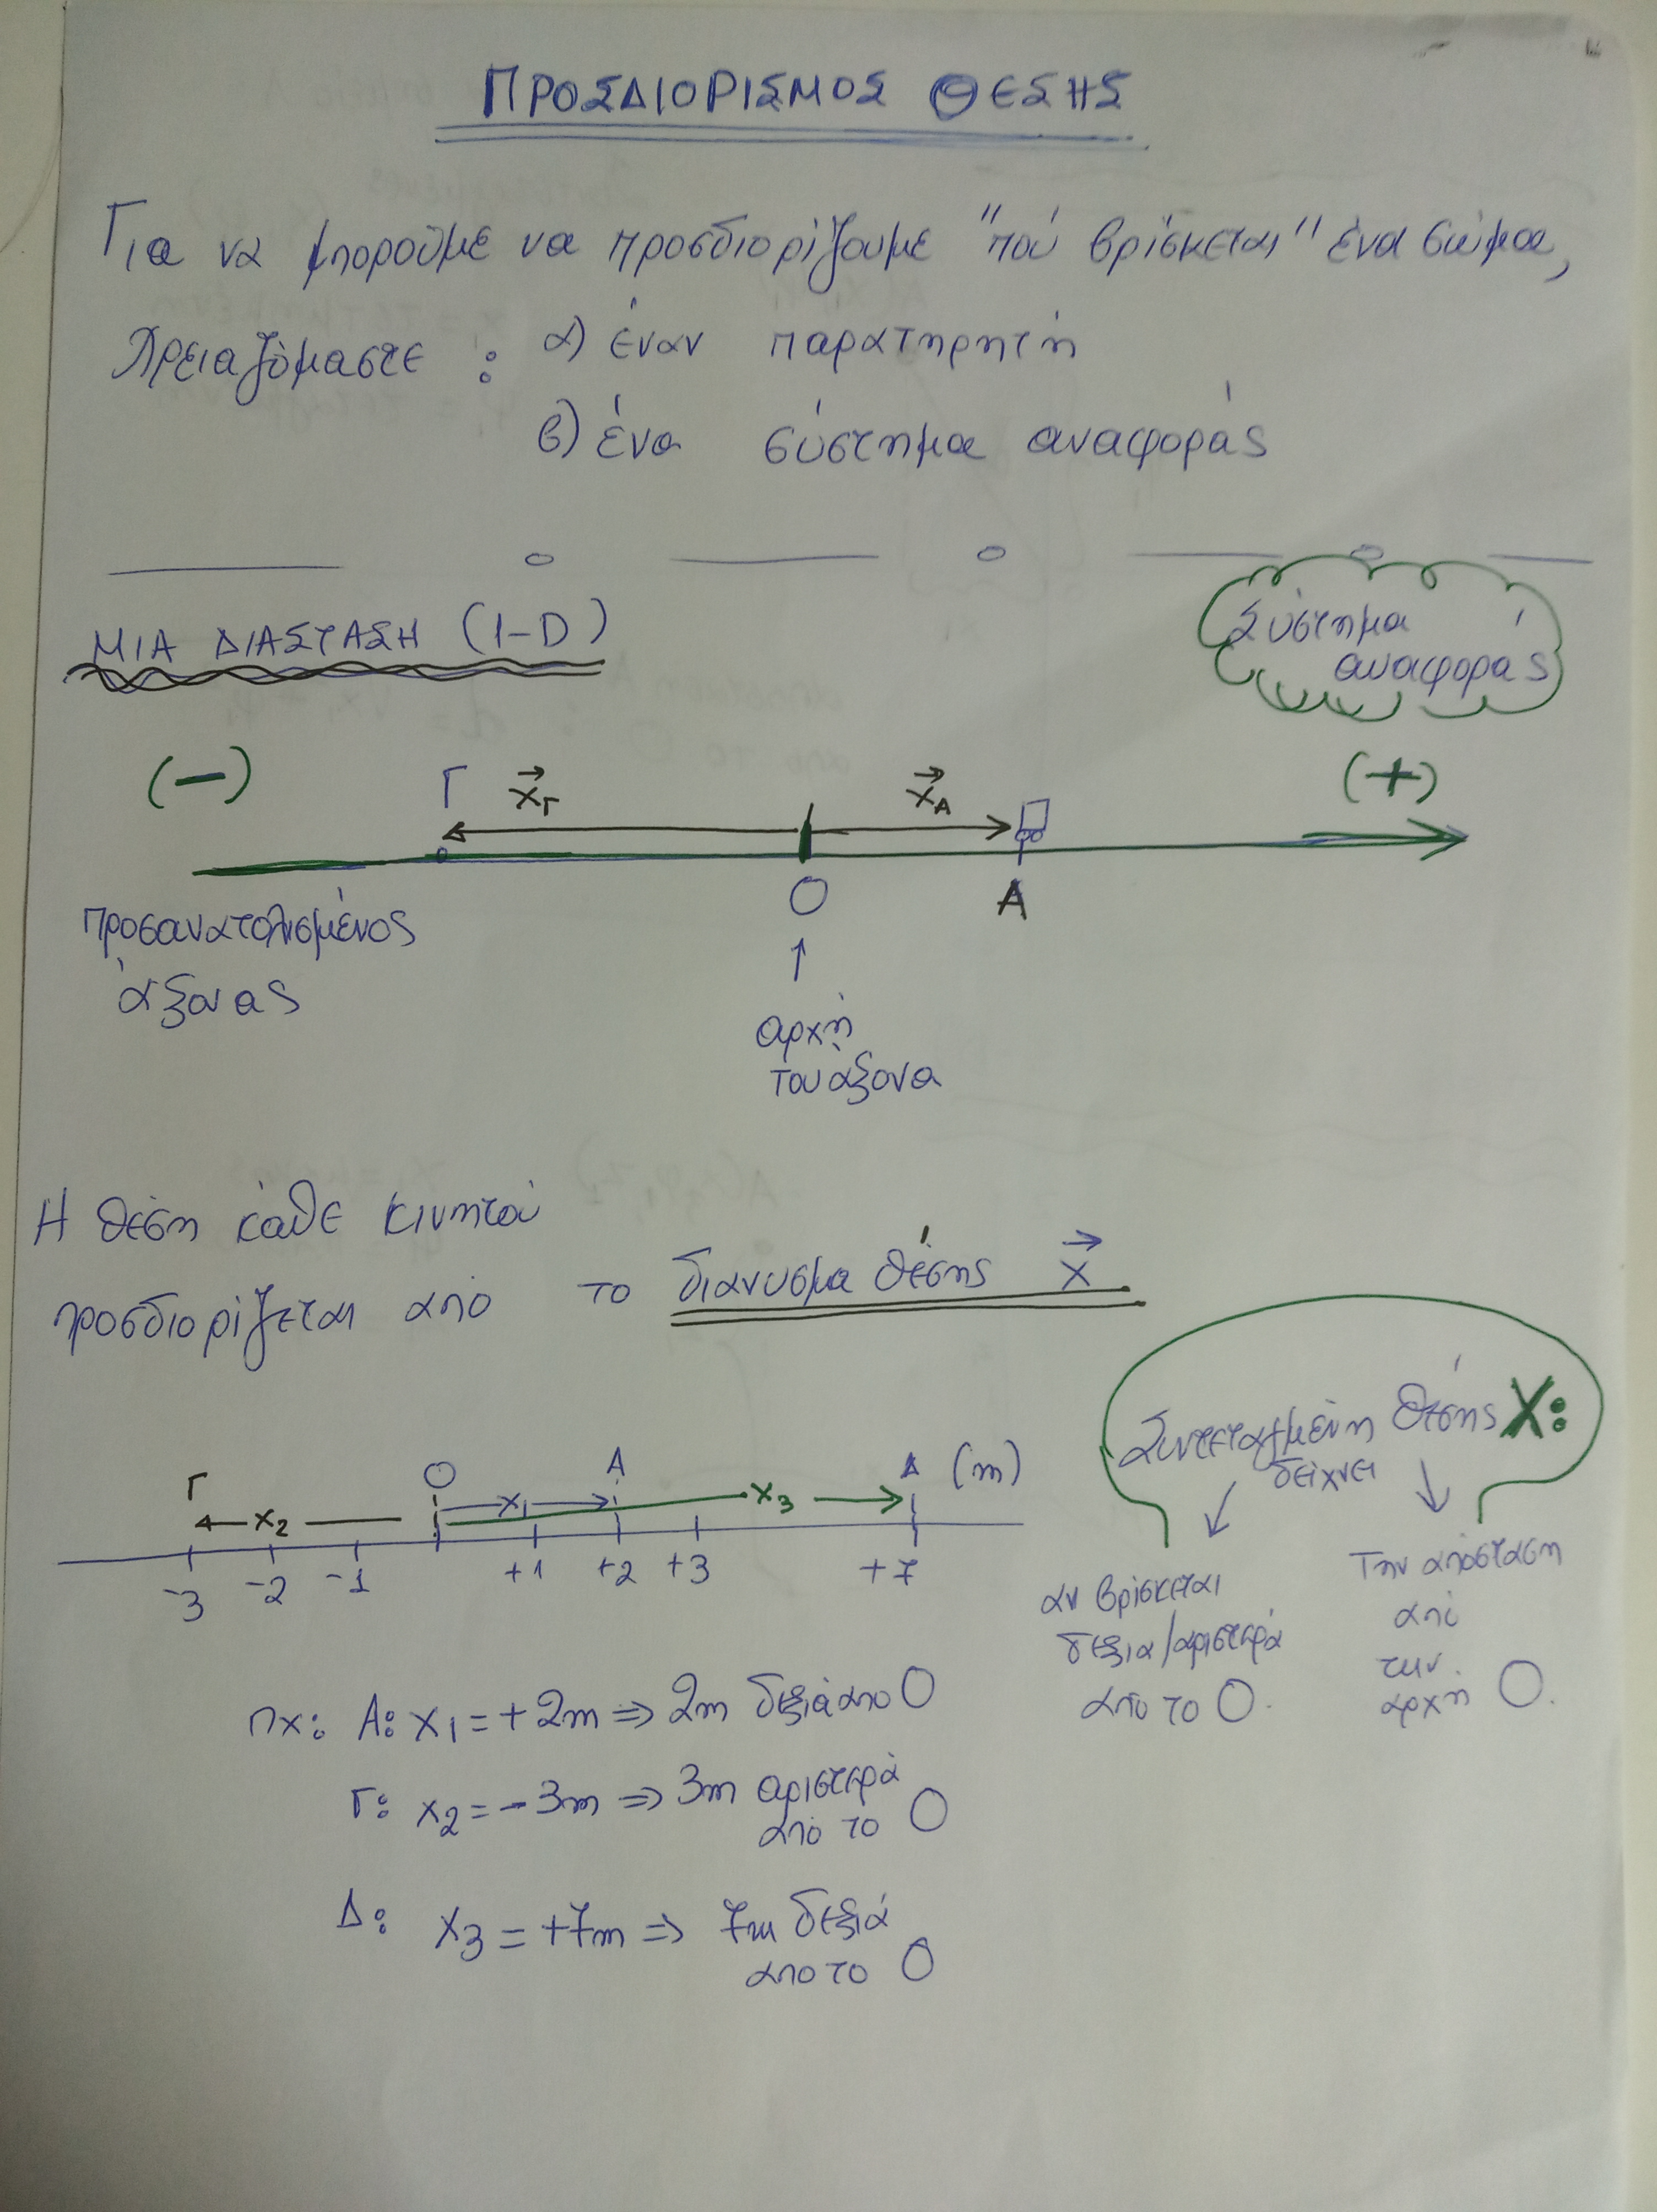 ΠΡΟΣΔΙΟΡΙΣΜΟΣ ΘΕΣΗΣ
Για να μπορούμε να προσδιορίζουμε "πού βρίσκεται" ένα σώμα,
χρειαζόμαστε : α) έναν παρατηρητή
β) ένα σύστημα αναφοράς
ΜΙΑ ΔΙΑΣΤΑΣΗ (1-D)
Σύστημα
αναφοράς
(-) Γ x⃗Γ x⃗A (+)
Ο Α
προσανατολισμένος
άξονας
↑
αρχή
του άξονα
Η θέση κάθε κινητού
προσδιορίζεται από το διάνυσμα θέσης x⃗
Συντεταγμένη θέσης X:
δείχνει
αν βρίσκεται
δεξιά/αριστερά
από το Ο.
Την απόσταση
από
την
αρχή Ο.
Γ Ο Α Δ (m)
x2 x1 x3
-3 -2 -1 +1 +2 +3 +7
πχ: Α: x1 = +2m ⇒ 2m δεξιά από Ο
Γ: x2 = -3m ⇒ 3m αριστερά
από το Ο
Δ: x3 = +7m ⇒ 7m δεξιά
απο το Ο